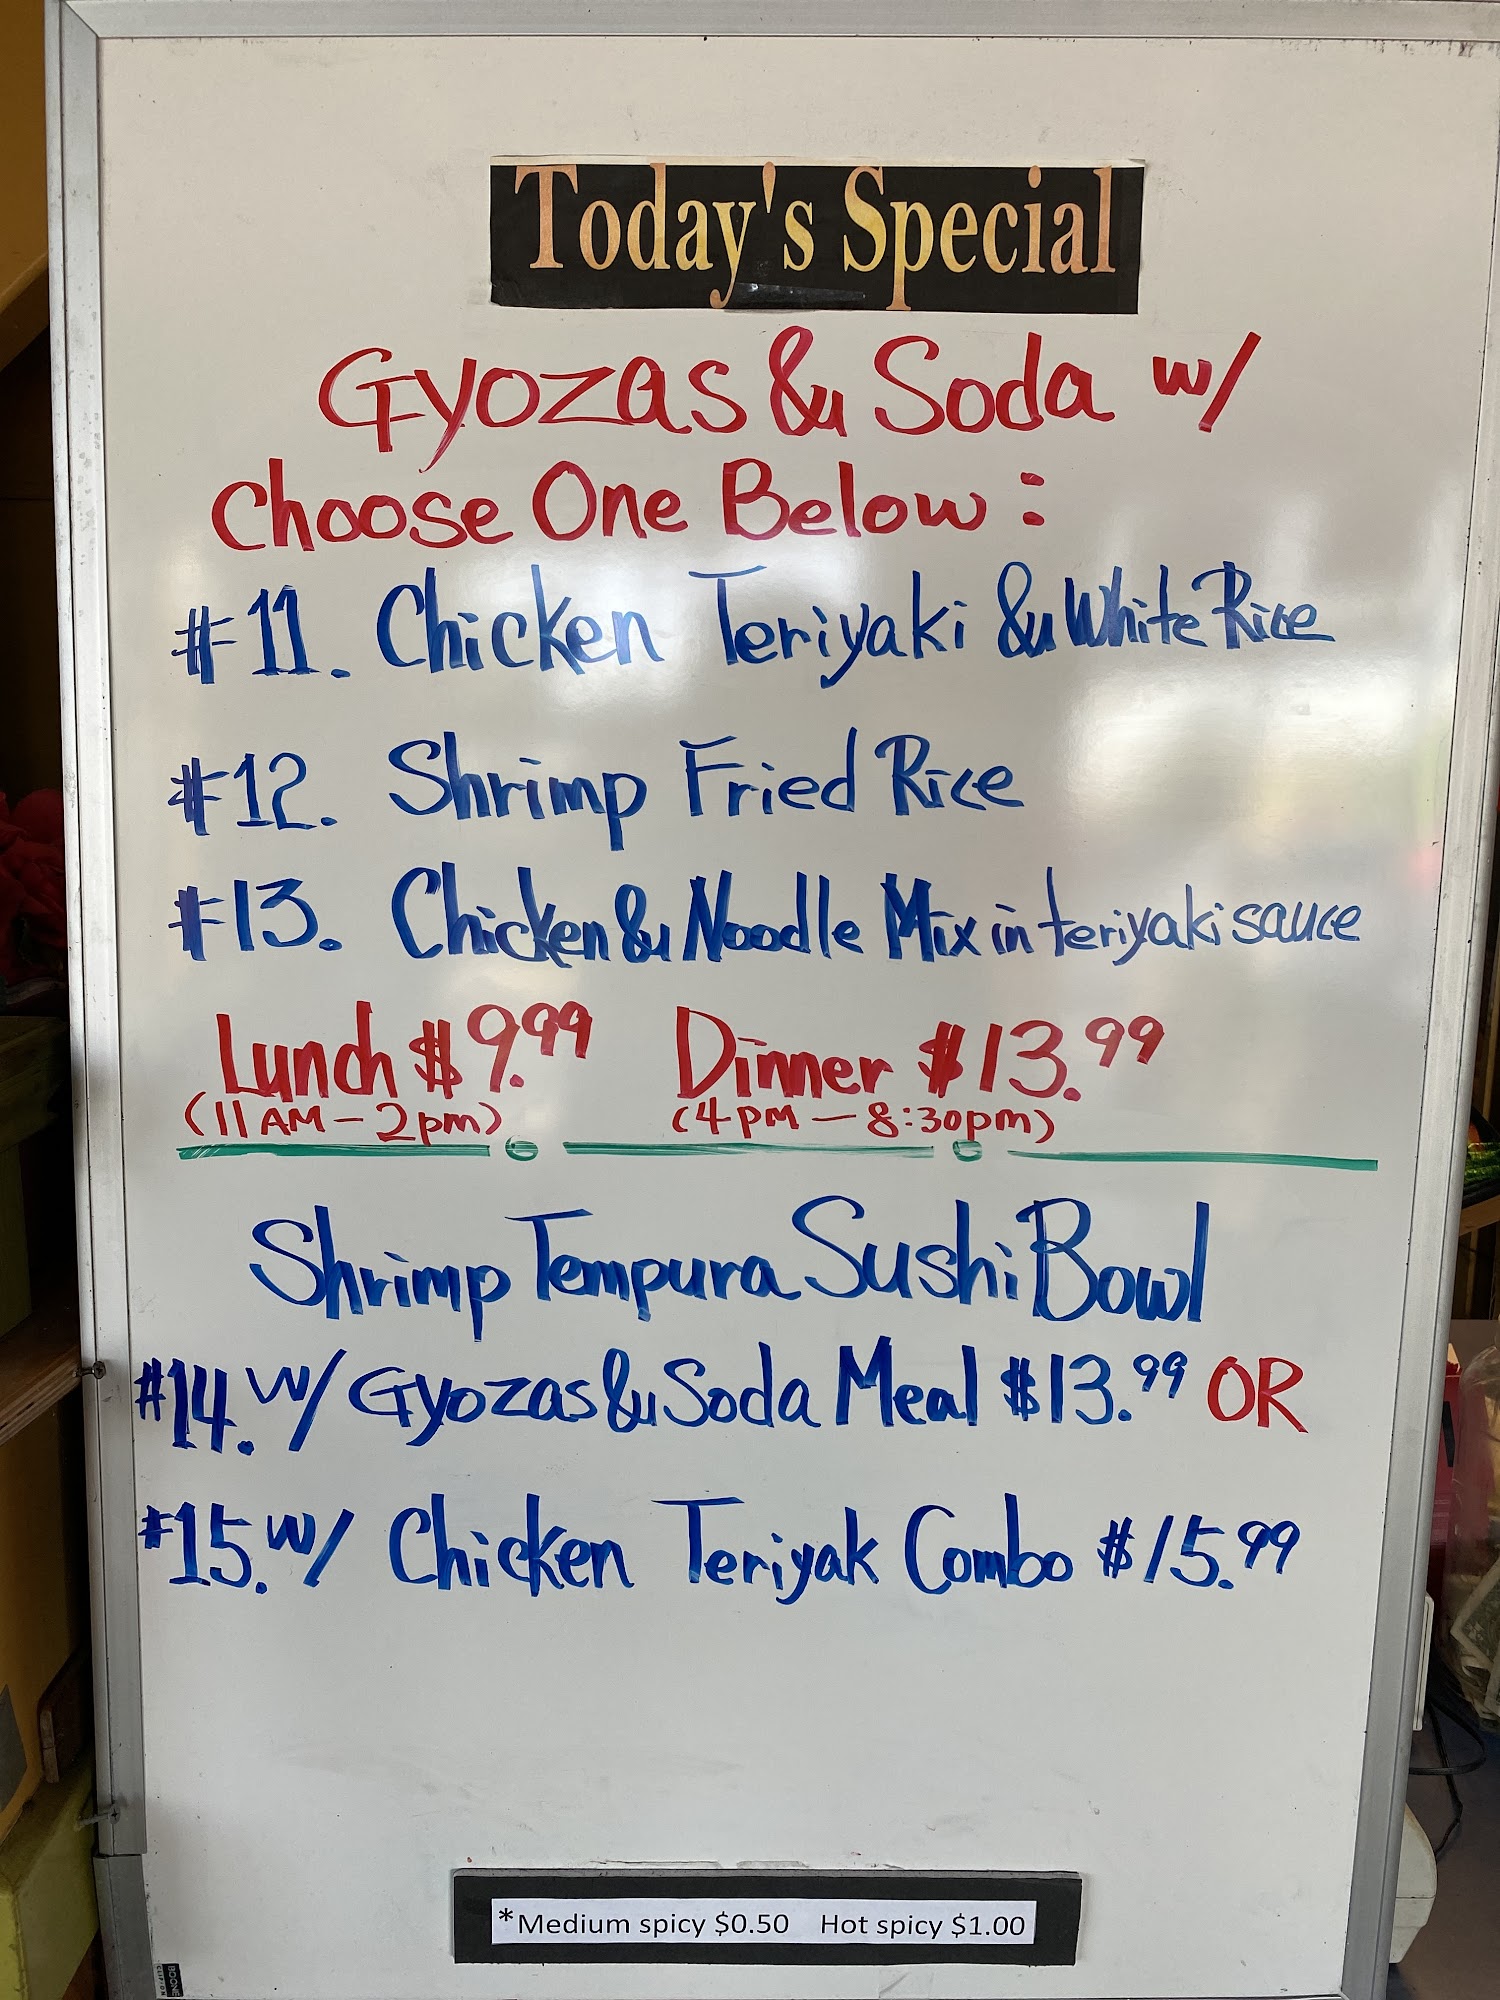 Today's Special
Gyozas & Soda w/
Choose One Below:
#11. Chicken Teriyaki & White Rice
#12. Shrimp Fried Rice
#13. Chicken & Noodle Mix in teriyaki sauce
Lunch $9.99 Dinner $13.99
(11AM-2pm) (4PM-8:30pm)
Shrimp Tempura Sushi Bowl
#14. w/ Gyozas & Soda Meal $13.99 OR
#15. w/ Chicken Teriyak Combo $15.99
*Medium spicy $0.50 Hot spicy $1.00
BOONE